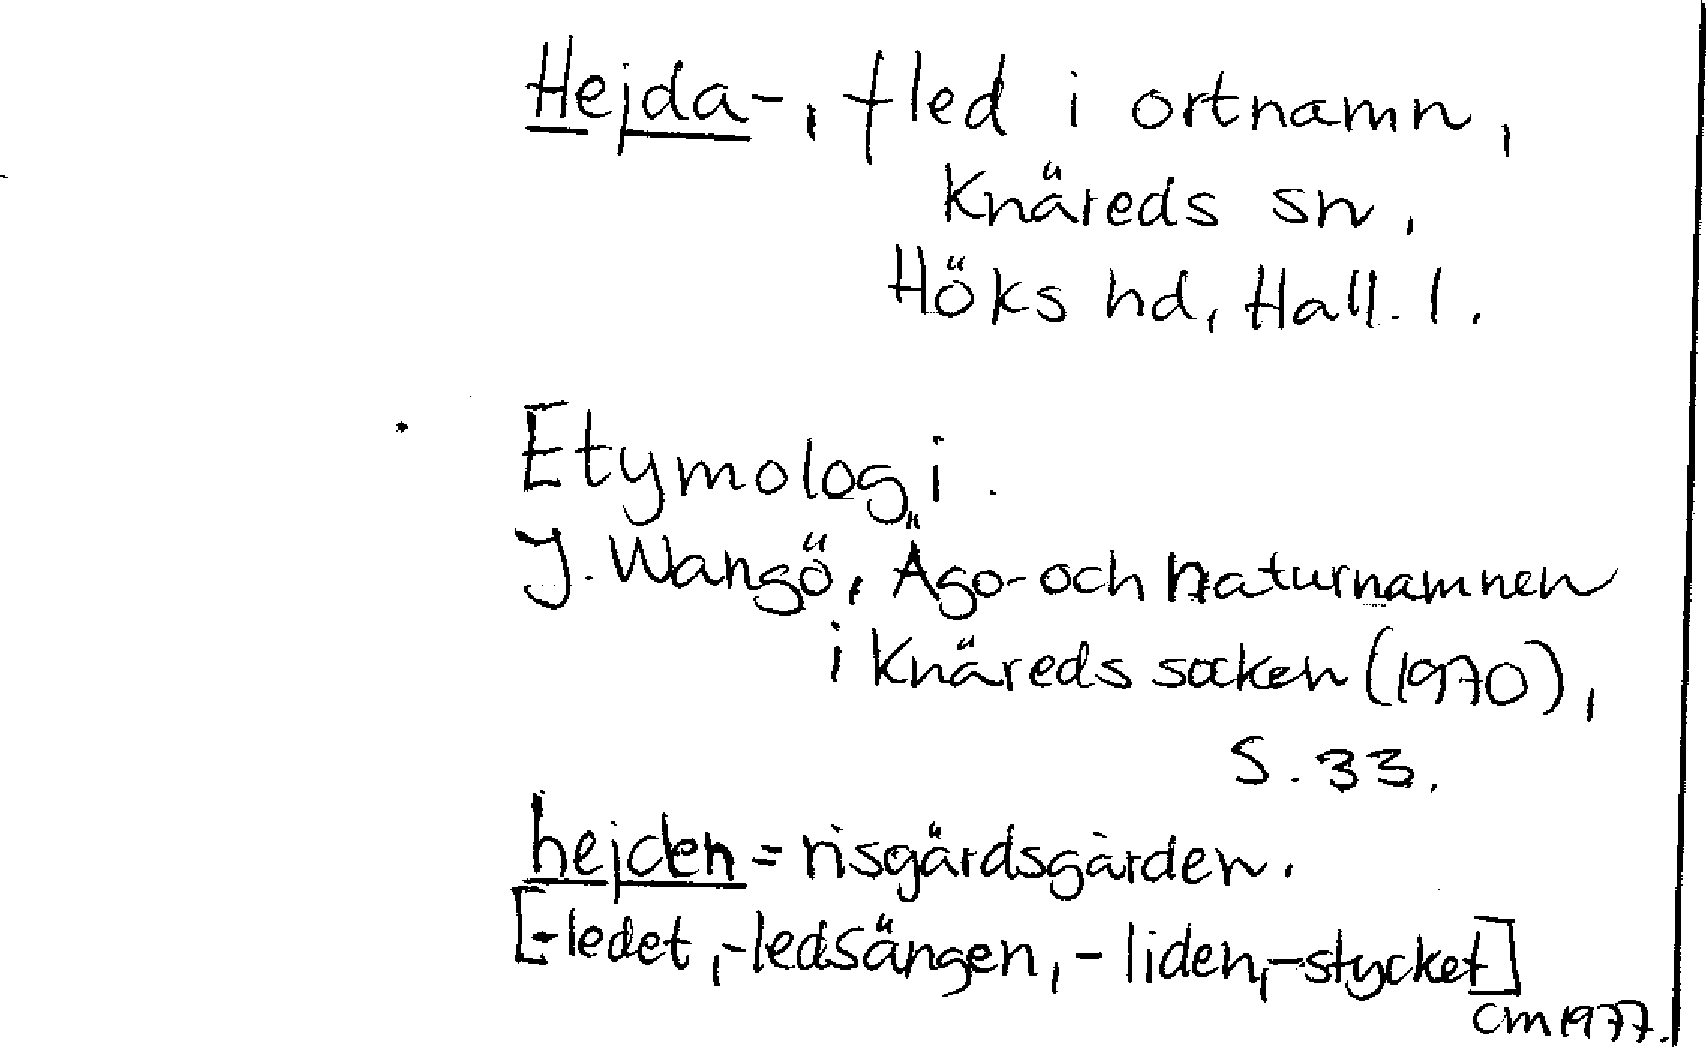 Hejda-, fled i ortnamn,
Knäreds sn,
Höks hd, Hall. l.
Etymologi.
J. Wangö, Ägo- och naturnamnen
i Knäreds socken (1970),
s. 33.
hejden = risgärdsgården.
[-ledet, -ledsängen, -liden, -stycket]
CM 1977.